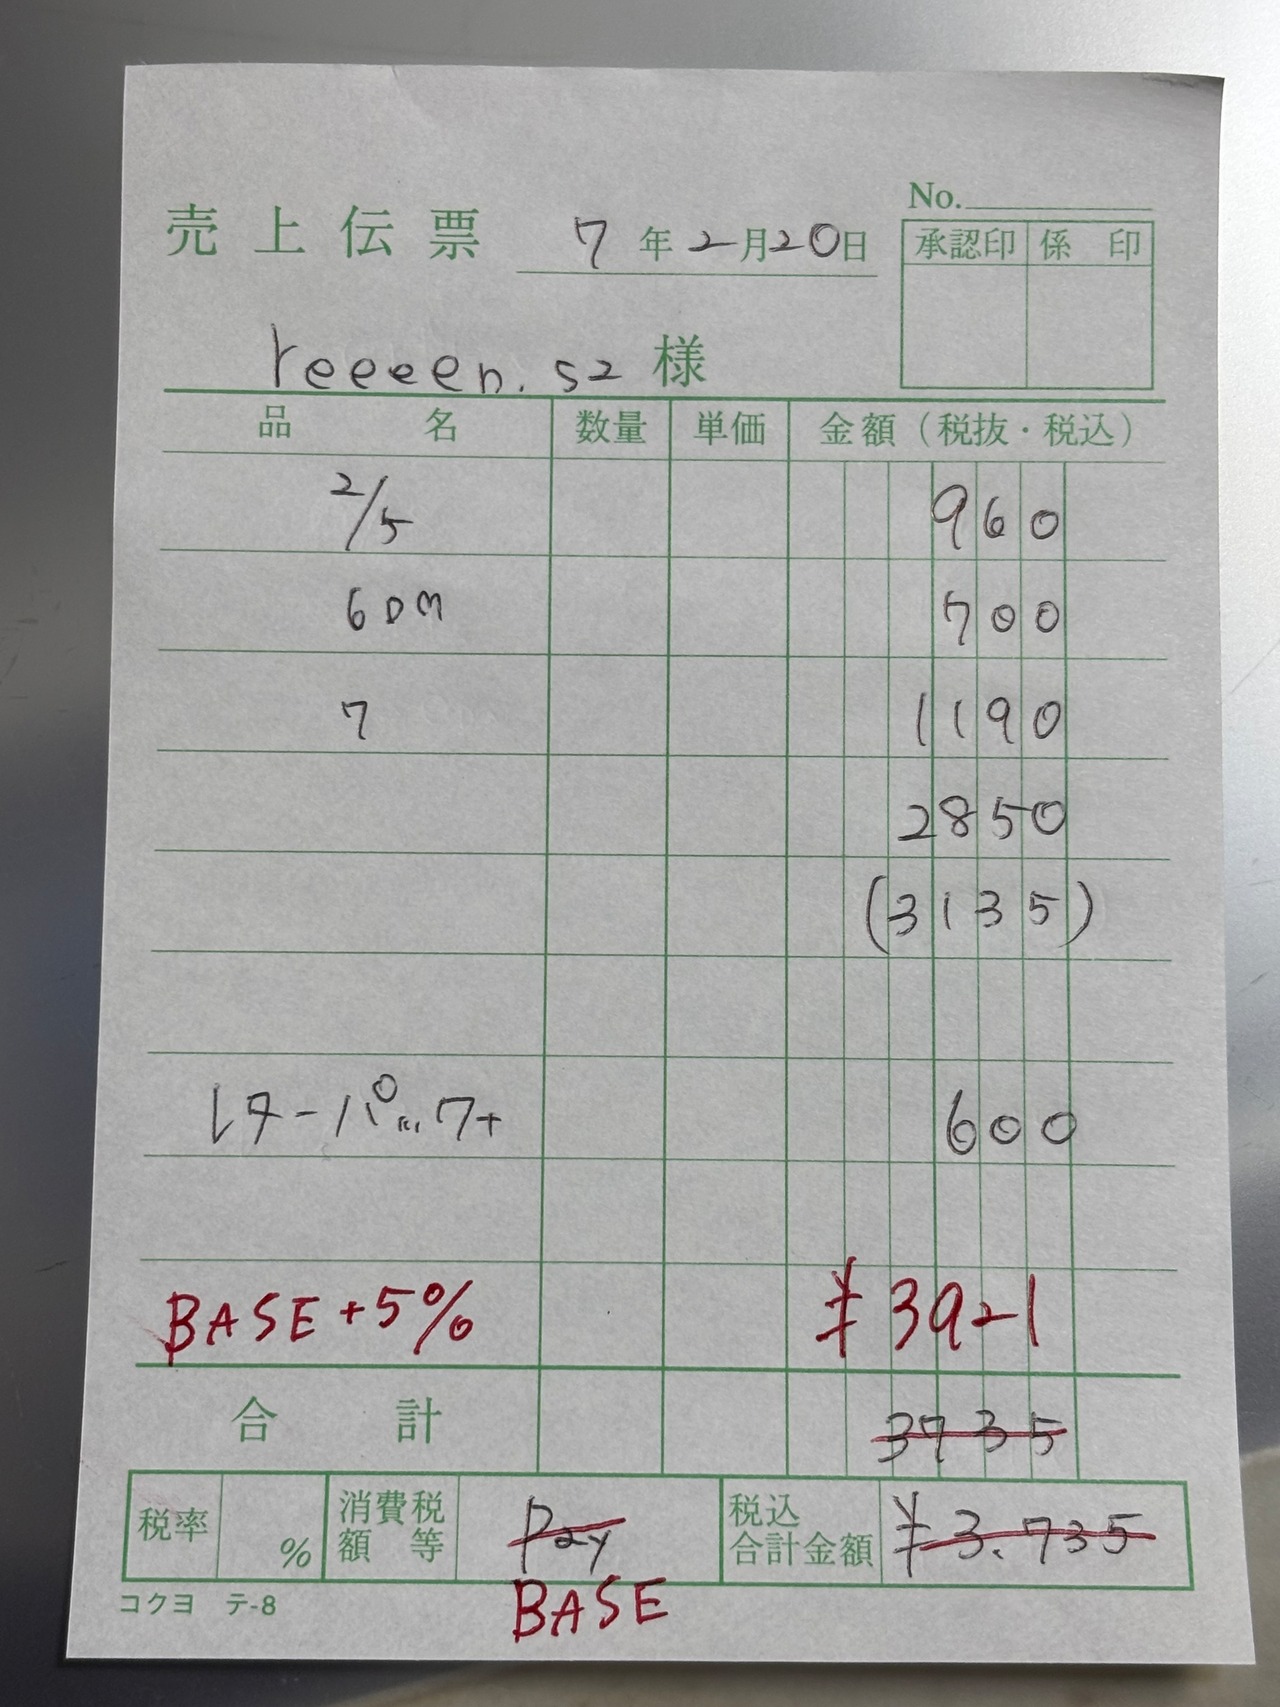 No.
売上伝票 7年2月20日
承認印 係印
reeeen.s2 様
品名 数量 単価 金額(税抜・税込)
2/5 960
6DM 700
7 1190
2850
(3135)
レターパックプラ 600
BASE+5% ¥3921
合計 3735
税率 % 消費税額等 Pay 税込合計金額 ¥3.735
コクヨ テ-8 BASE